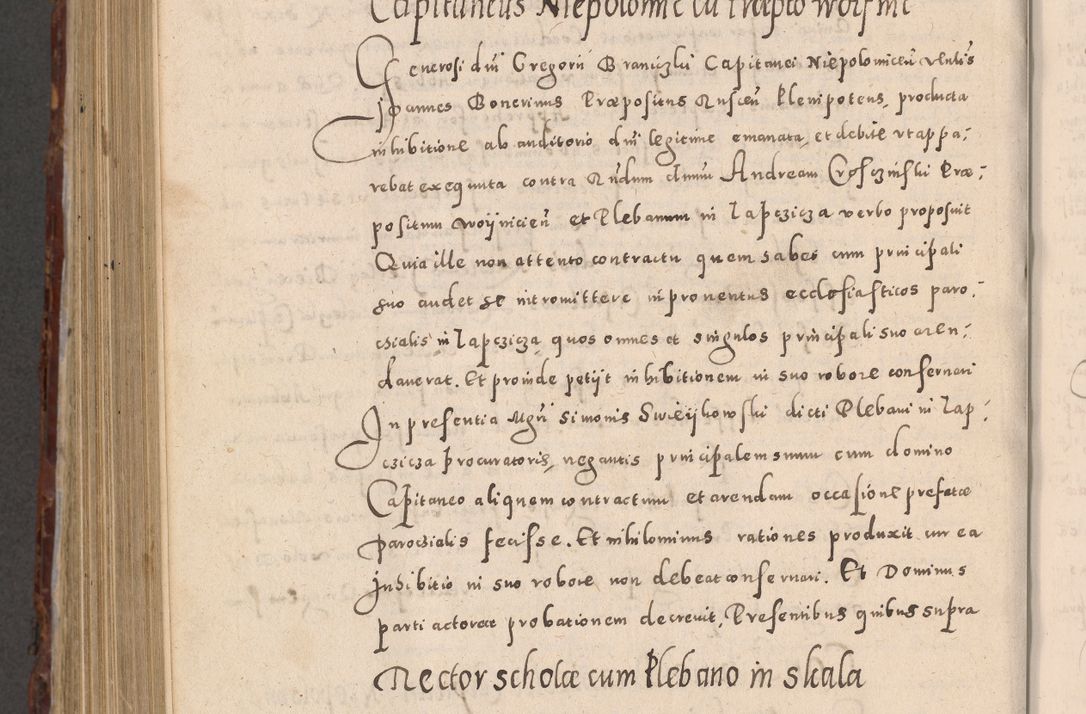 Capitaneus Niepolomicen
Generosi dni Gregorii Braniczki Capitanei Niepolomiceñ
Joannes Bonerinus Præpositus Rusceñ Plenipotens, producta
inhibitione ab auditorio dni legitime emanata, et debite ut appa:
rebat exequuta contra Rñdum dñum Andream Croscziński Præ:
positum Woynicieñ et Plebanum in Lapczicza verbo proposuit
Quia ille non attento contractu quem habet cum principali
suo audet se intromittere in proventus ecclesiasticos paro:
chialis in Lapczicza, quos omnes et singulos principali suo aren:
daverat. Et proinde petijt inhibitionem in suo robore conservari
In presentia Mgri Simonis Swieijkowski dicti Plebani in Lap:
czicza procuratoris, negantis principalem suum cum domino
Capitaneo aliquem contractum et arendam occasione prefatæ
parochialis fecisse. Et nihilominus rationes produxit cur ea
Inhibitio in suo robore non debeat conservari. Et Dominus
parti actoreæ probationem decrevit, Presentibus quibus supra
Rector scholæ cum Plebano in skala